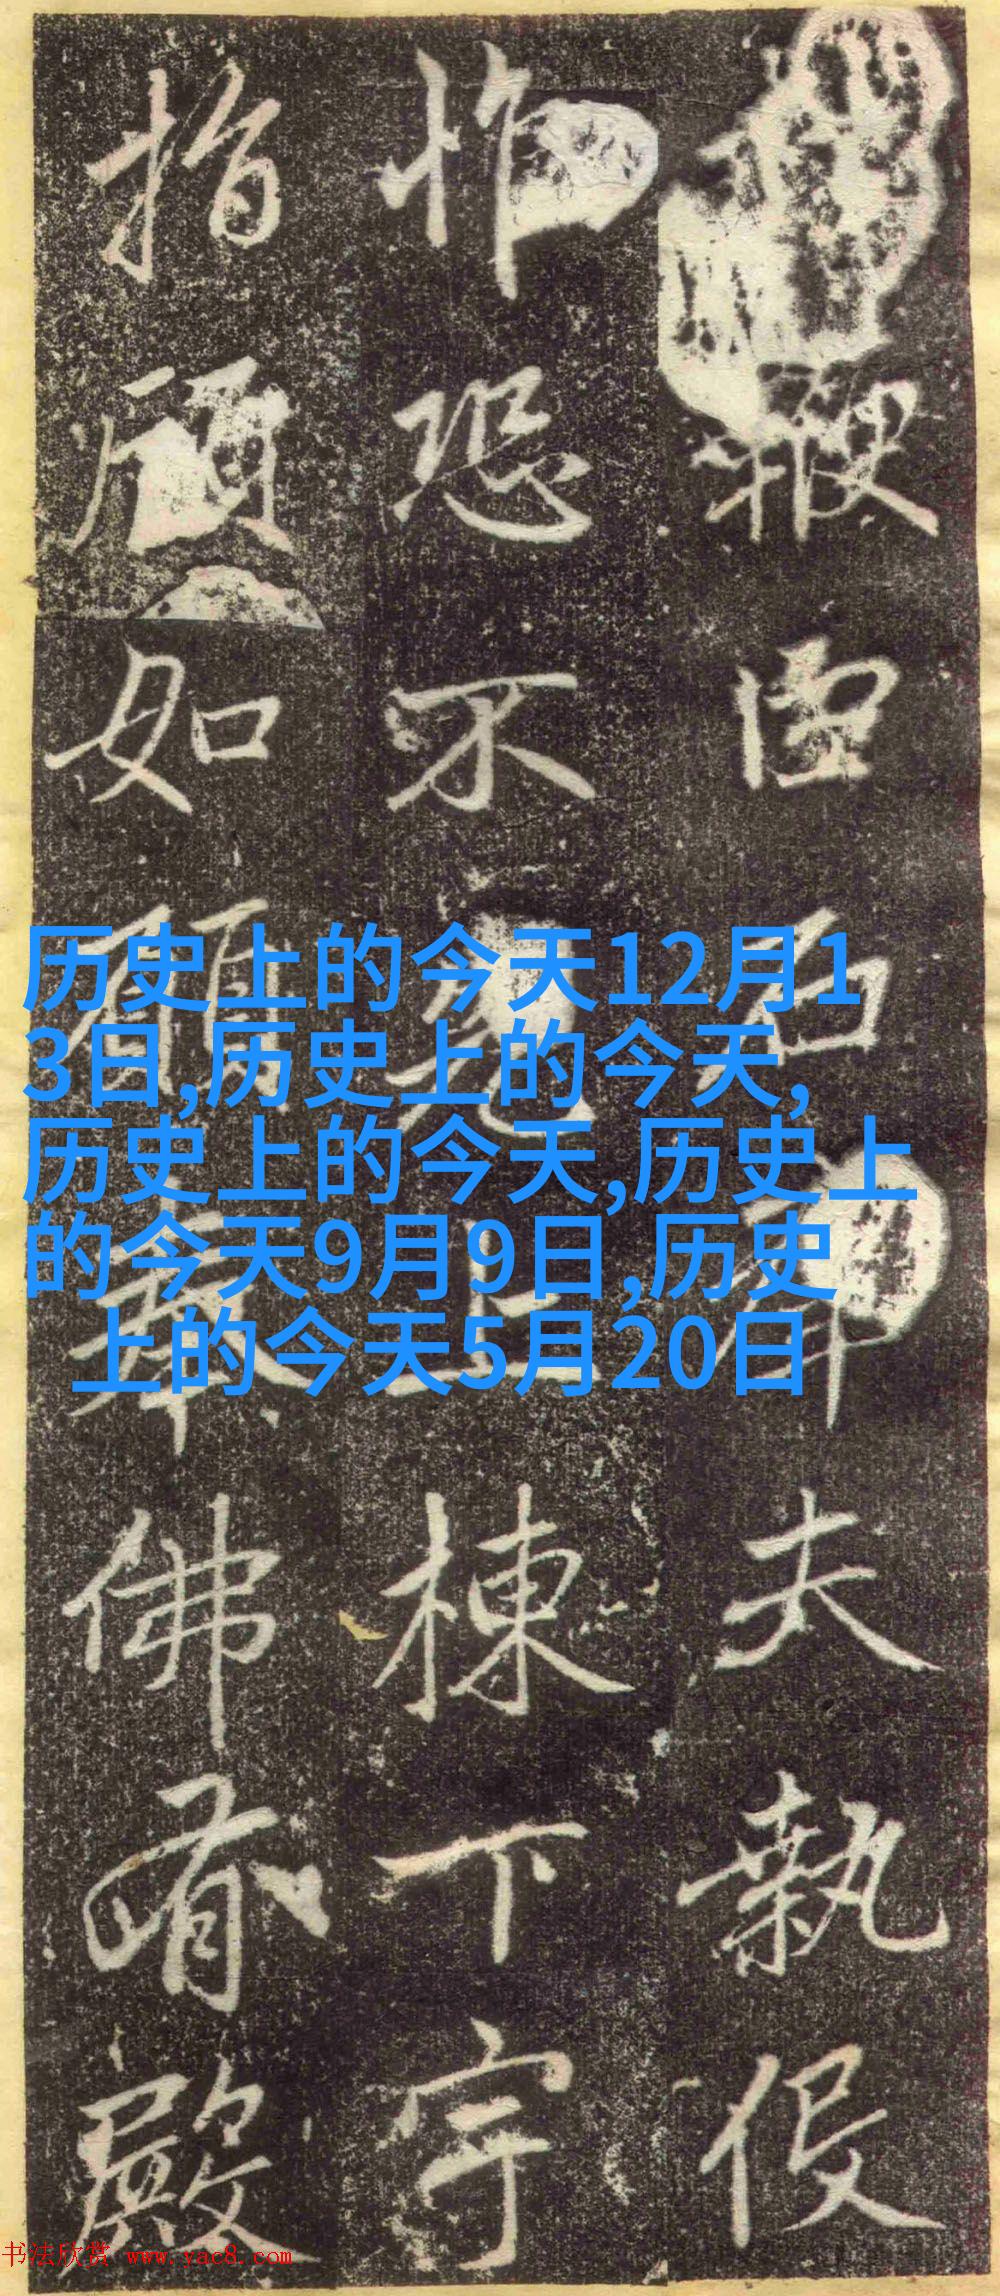 夫執役
恐不
上棟下宇
指顧如願
佛有殿
历史上的今天12月1
3日,历史上的今天,
历史上的今天,历史上
的今天9月9日,历史
上的今天5月20日
书法欣赏 www.yac8.com